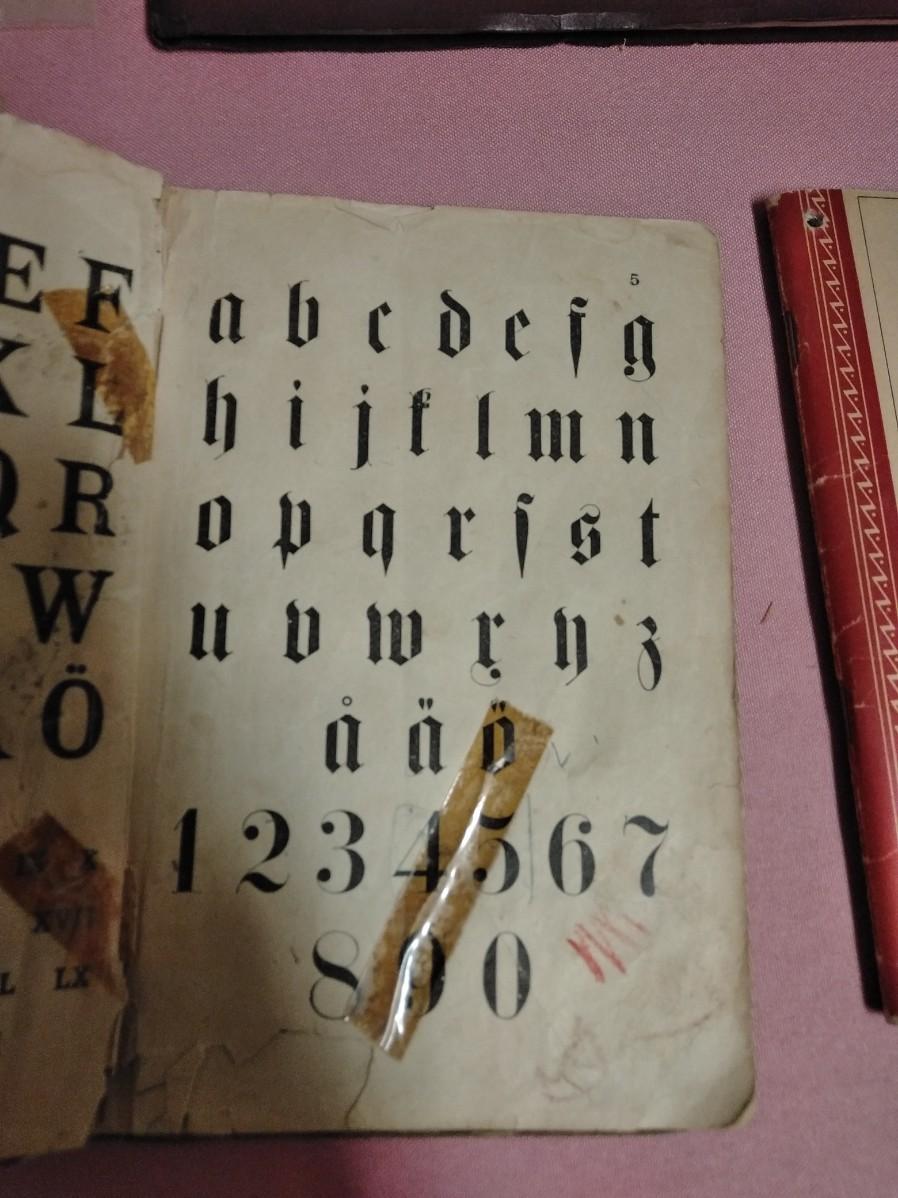 E F
K L
Q R
W
Ö
IV X
XVII
L LX
5
a b c d e f g
h i j k l m n
o p q r ſ s t
u v w x y z
å ä ö
1 2 3 4 5 6 7
8 9 0